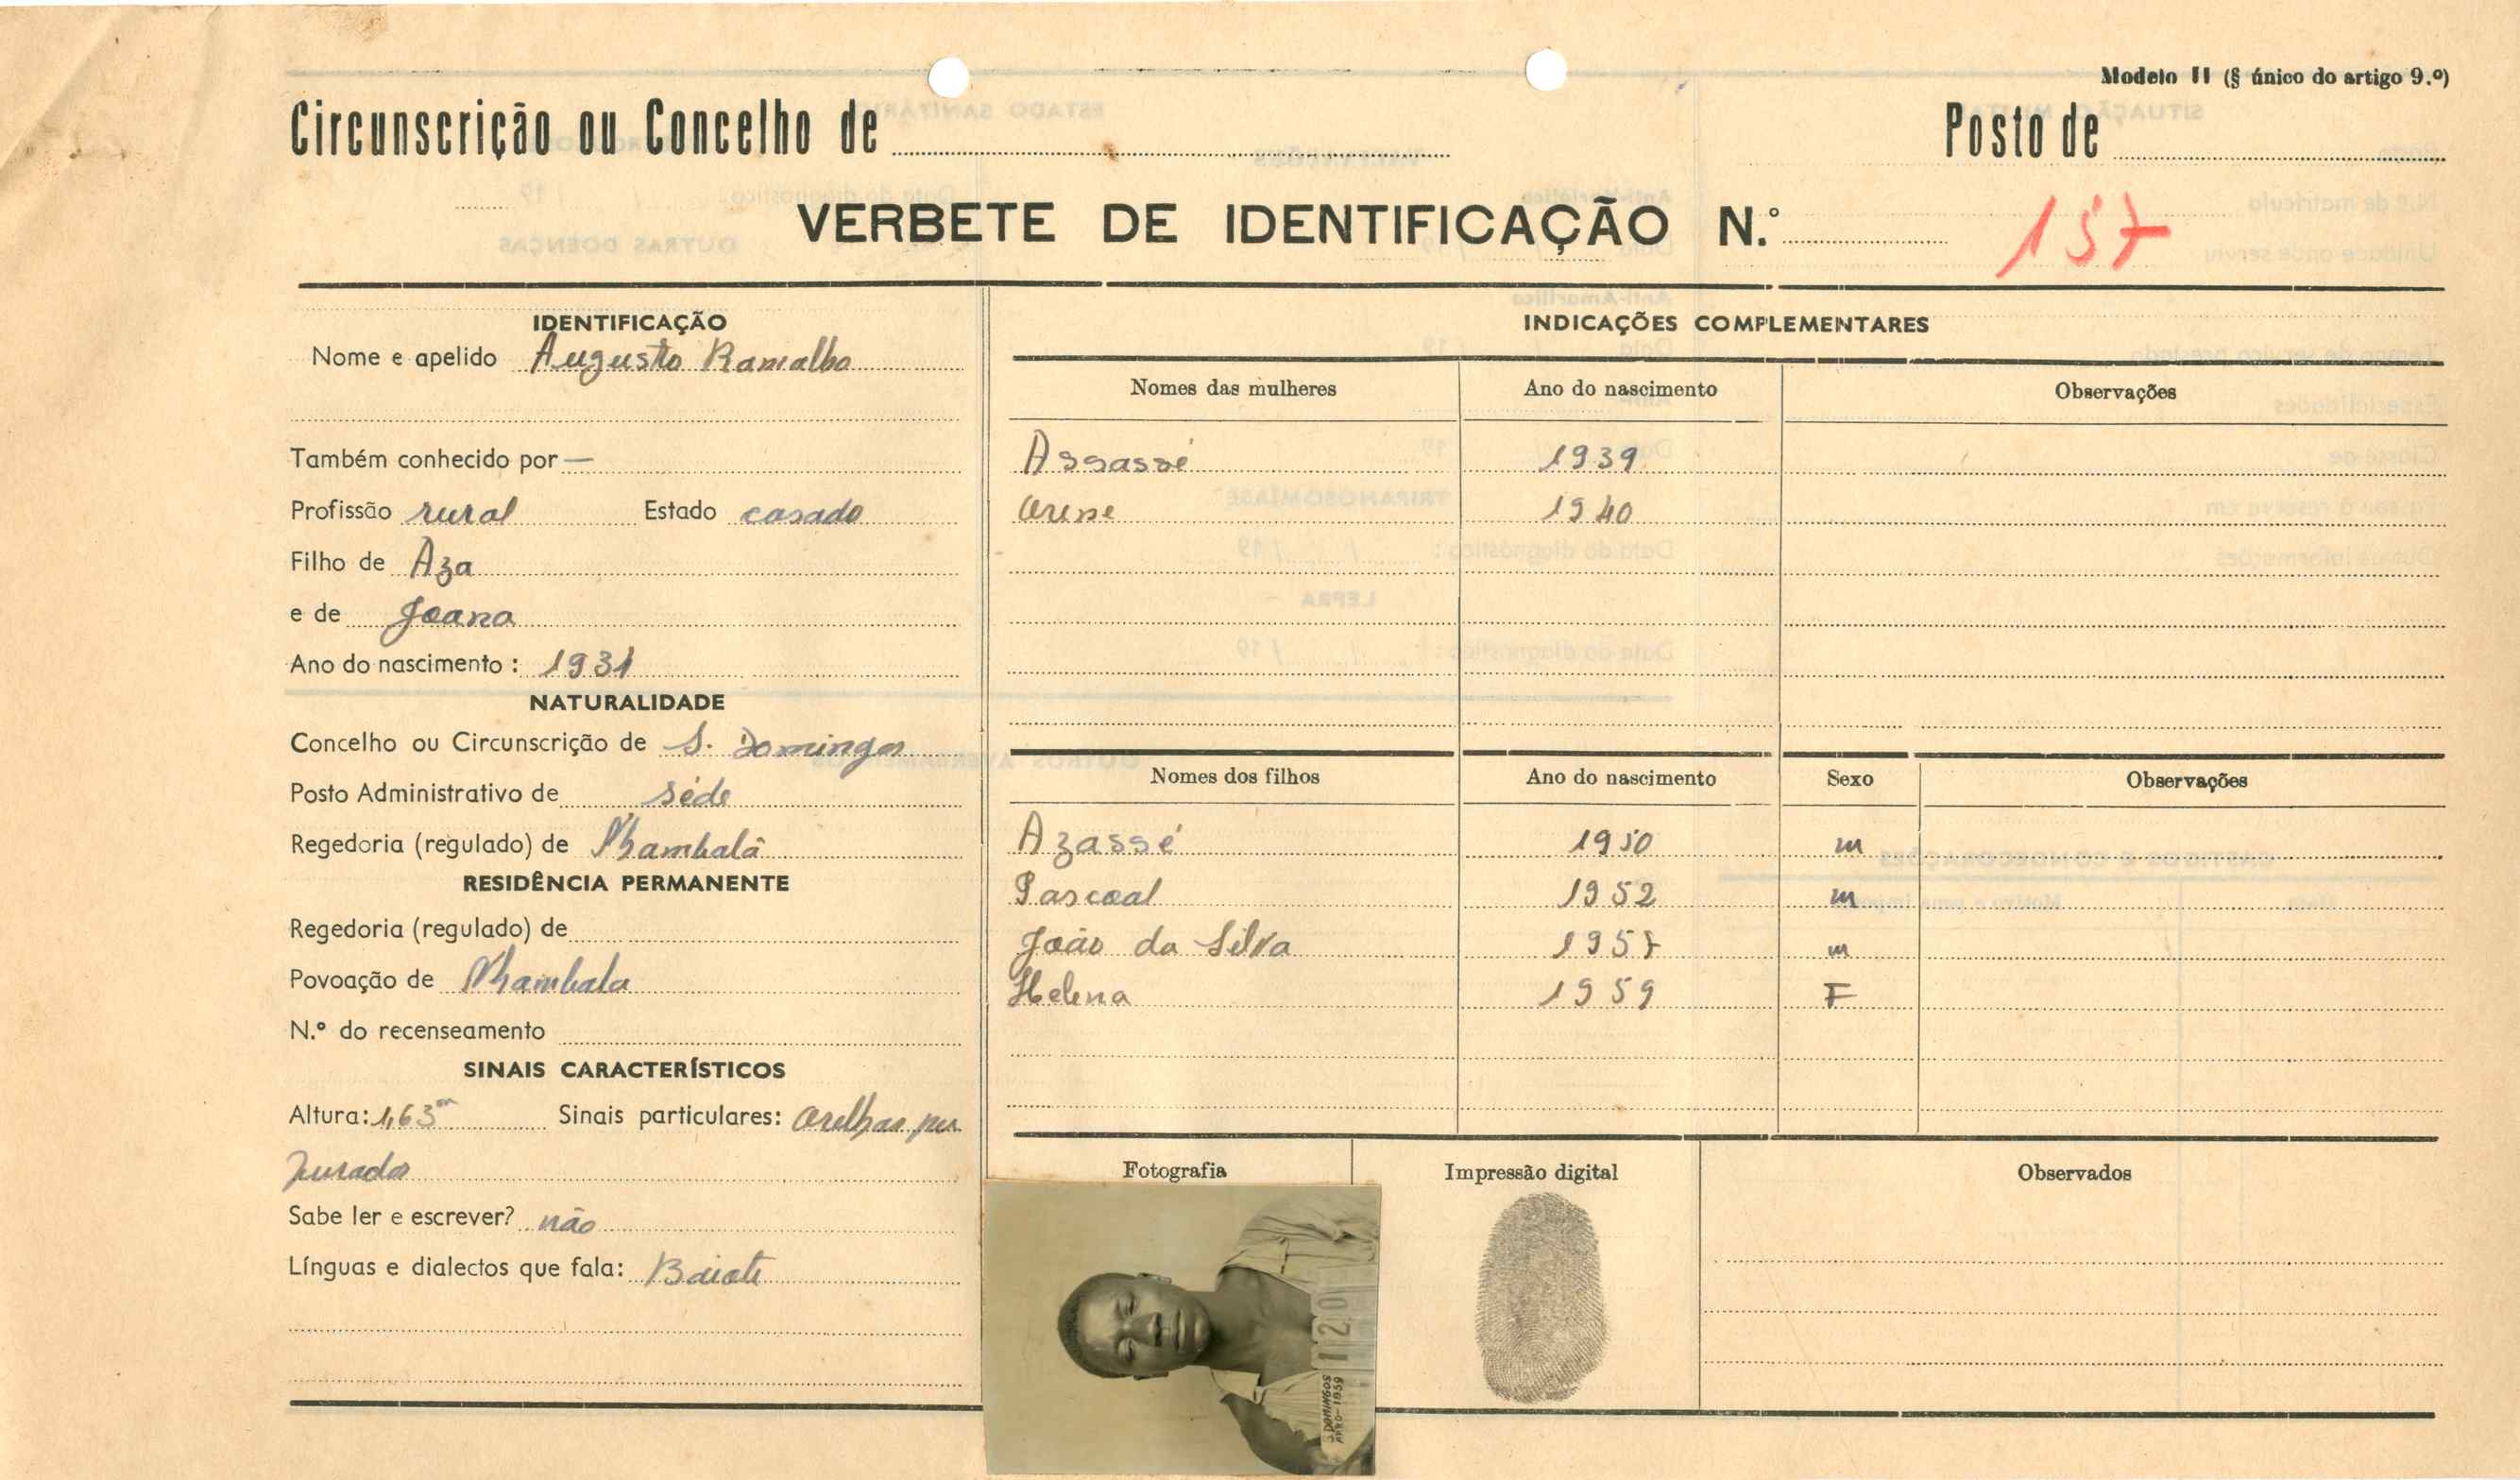 Modelo II (§ único do artigo 9.º)
Circunscrição ou Concelho de
Posto de
VERBETE DE IDENTIFICAÇÃO N.º 157
IDENTIFICAÇÃO
Nome e apelido Augusto Ramalho
Também conhecido por —
Profissão rural Estado casado
Filho de Aza
e de Joana
Ano do nascimento: 1931
NATURALIDADE
Concelho ou Circunscrição de S. Domingos
Posto Administrativo de séde
Regedoria (regulado) de
RESIDÊNCIA PERMANENTE
Regedoria (regulado) de
Povoação de
N.º do recenseamento
SINAIS CARACTERÍSTICOS
Altura: 1,63m Sinais particulares: orelhas per
furadas
Sabe ler e escrever? não
Línguas e dialectos que fala: Baiote
INDICAÇÕES COMPLEMENTARES
Nomes das mulheres Ano do nascimento Observações
Assassé 1939
1940
Nomes dos filhos Ano do nascimento Sexo Observações
Azassé 1950 m
Pascoal 1952 m
João da Silva 1957 m
Helena 1959 F
Fotografia Impressão digital Observados
120
S.DOMINGOS
1959